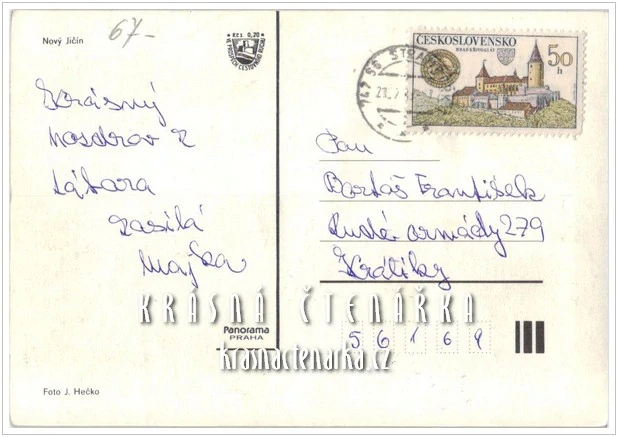 Nový Jičín
67-
Kčs 0,20
ČESKOSLOVENSKO
HRAD KŘIVOKLÁT
50
h
742 56
Krásný
pozdrav z
tábora
zasílá
Majka
Pan
Bartoš František
Rudé armády 279
Králíky
56169
KRÁSNÁ ČTENÁŘKA
krasnactenarka.cz
Panorama
PRAHA
Foto J. Hečko